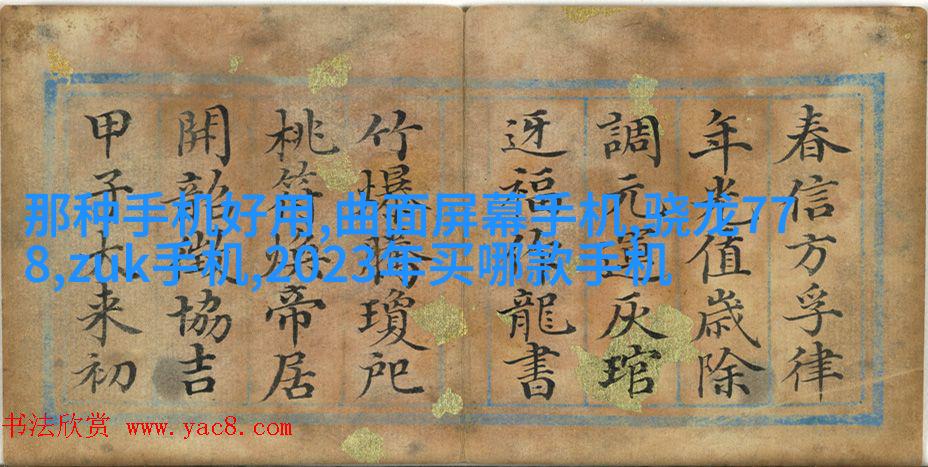 春信方孚律
年光值歲除
調元運灰琯
迓福龍書
竹爆騰瓊
桃符煥帝居
開韶徵協吉
甲子大來初
那种手机好用,曲面屏幕手机,骁龙77
8,zuk手机,2023年买哪款手机
书法欣赏 www.yac8.com